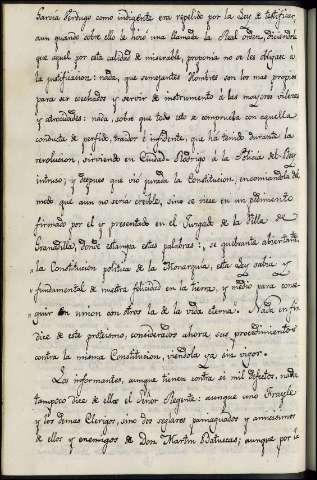 García Perdugo como indigente era repelido por la Ley de testificar,
aun quando sobre ello se hizo una llamada la Real orden, diciendole
que aquel por esta calidad de miserable, proponia no se les obligase à
la justificacion: nada, que semejantes Hombres son los mas propios
para ser cohechados y servir de instrumento à las mayores vilezas
y atrocidades: nada, sobre que todo esto se comprueba con aquella
conducta de perfido, traidor è infidente, que ha tenido durante la
revolucion, sirviendo en Ciudad Rodrigo à la Policia del Rey
intruso; y despues que vió jurada la Constitucion, encomiandola del
modo que aun no seria creible, sino se viese en un pedimento
firmado por el y presentado en el Juzgado de la Villa de
Granadilla, donde estampa estas palabras:, se quebranta abiertamte
"la Constitucion politica de la Monarquia, esta Ley sabia y
"fundamental de nuestra felicidad en la tierra, y medio para conse-
"guir en union con otros la de la vida eterna". Nada en fin
dice de este proteismo, considerados ahora sus procedimientos
contra la misma Constitucion, viendola ya sin vigor.
Los informantes, aunque tienen contra si mil defectos, nada
tampoco dice de ellos el Señor Regente: aunque uno Frayle
y los demas Clerigos, sino dos seglares paniaguados y amicisimos
de ellos y enemigos de Don Martin Batuecas; aunque por